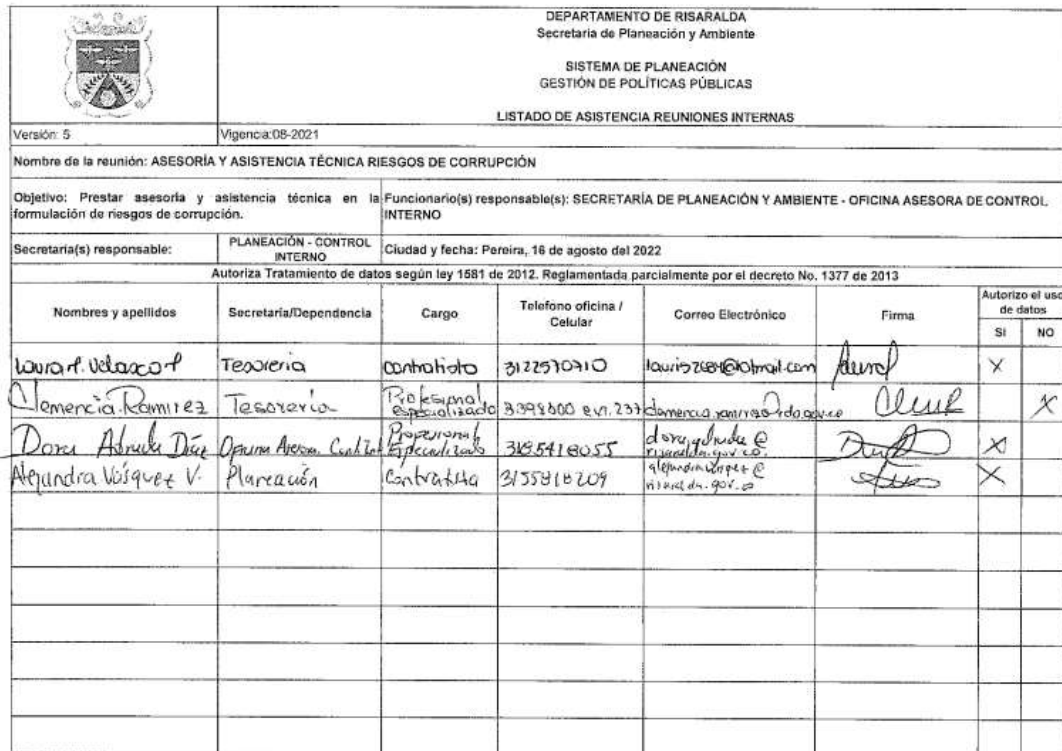 DEPARTAMENTO DE RISARALDA
Secretaria de Planeación y Ambiente
SISTEMA DE PLANEACIÓN
GESTIÓN DE POLÍTICAS PÚBLICAS
LISTADO DE ASISTENCIA REUNIONES INTERNAS
Versión: 5 Vigencia:08-2021
Nombre de la reunión: ASESORÍA Y ASISTENCIA TÉCNICA RIESGOS DE CORRUPCIÓN
Objetivo: Prestar asesoría y asistencia técnica en la formulación de riesgos de corrupción.
Funcionario(s) responsable(s): SECRETARÍA DE PLANEACIÓN Y AMBIENTE - OFICINA ASESORA DE CONTROL INTERNO
Secretaria(s) responsable: PLANEACIÓN - CONTROL INTERNO Ciudad y fecha: Pereira, 16 de agosto del 2022
Autoriza Tratamiento de datos según ley 1581 de 2012. Reglamentada parcialmente por el decreto No. 1377 de 2013
Nombres y apellidos Secretaría/Dependencia Cargo Telefono oficina / Celular Correo Electrónico Firma Autorizo el uso de datos
SI NO
Velasco Tesoreria contratista 3122570710 X
Clemencia Ramirez Tesoreria Profesional especializado X
Dora Díaz Profesional Especializado X
Alejandra Vásquez V. Planeación Contratista 3155818209 X